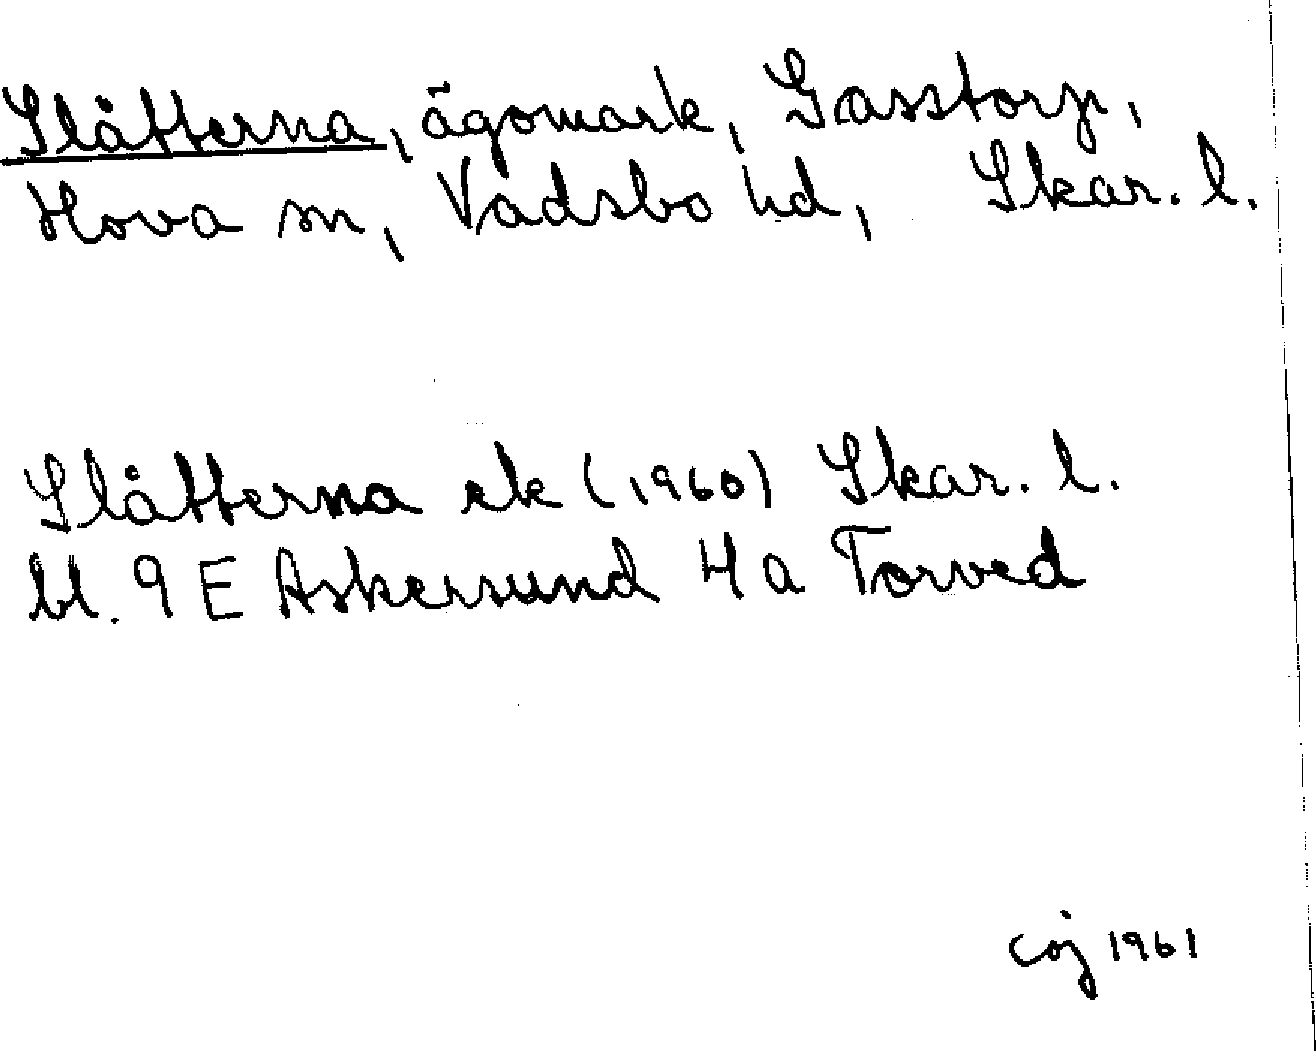 Slåtterna, ägomark, Gasstorp,
Hova sn, Vadsbo hd, Skar. l.
Slåtterna ek (1960) Skar. l.
bl. 9 E Askersund 4 a Torved
coj 1961